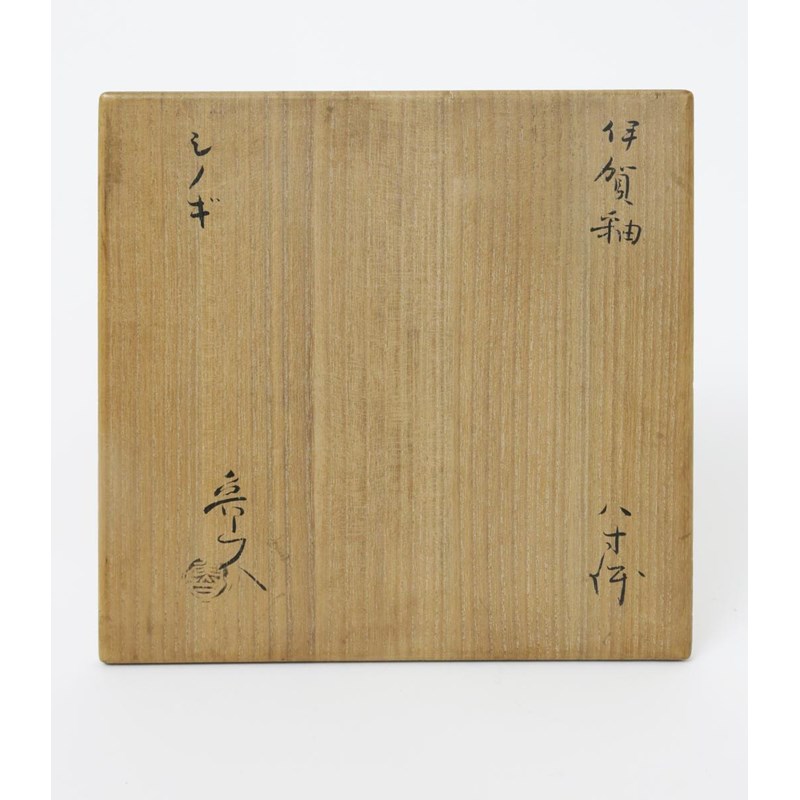 伊賀釉
八寸
シノギ
魯山人